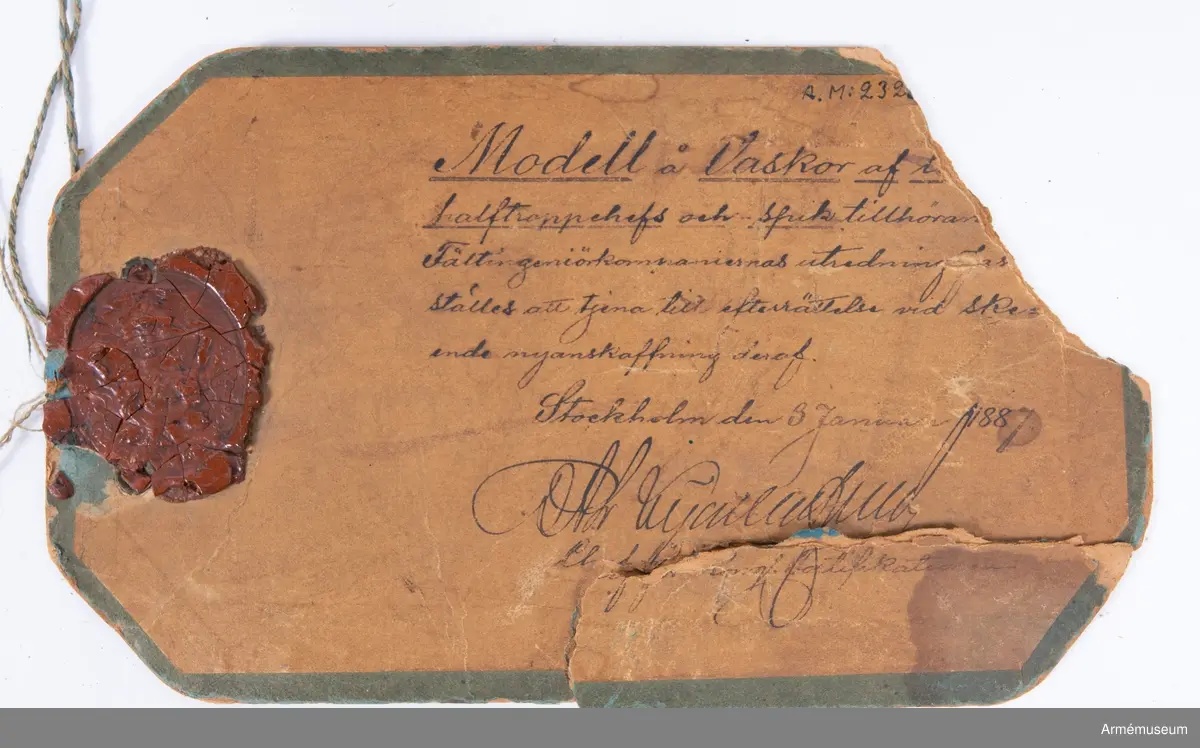 A. M: 232
Modell å Väskor af
halftroppchefs och spik tillhöran
Fältingeniörkompaniernas utredning
ställes att tjena till efterrättelse vid ske=
ende nyanskaffning deraf.
Stockholm den 3 Januari 1887
Fortifikationen
Armémuseum